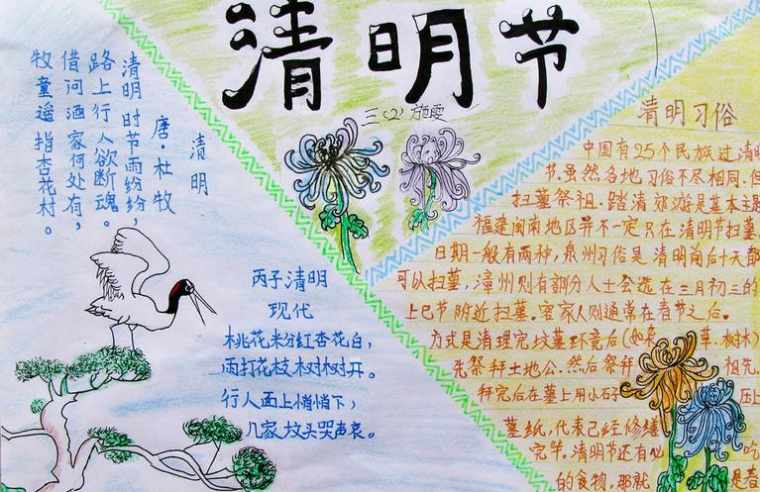 清明节
三(2) 施
清明
唐·杜牧
清明时节雨纷纷，
路上行人欲断魂。
借问酒家何处有，
牧童遥指杏花村。
丙子清明
现代
桃花粉红杏花白，
雨打花枝树树开。
行人面上悄悄下，
几家坟头哭声哀。
清明习俗
中国有25个民族过清明
节.虽然各地习俗不尽相同.但
扫墓祭祖.踏清郊游是基本主题
福建闽南地区并不一定只在清明节扫墓.
日期一般有两种，泉州习俗是清明前后十天都
可以扫墓，漳州则有部分人士会选在三月初三的
上巳节附近扫墓。客家人则通常在春节之后。
方式是清理完坟墓环境后(如 草、树木)
先祭拜土地公.然后祭拜 祖先.
拜完后在墓上用小石子 压上
墓纸，代表已经修缮
完毕，清明节还有 吃
的食物，那就 是春